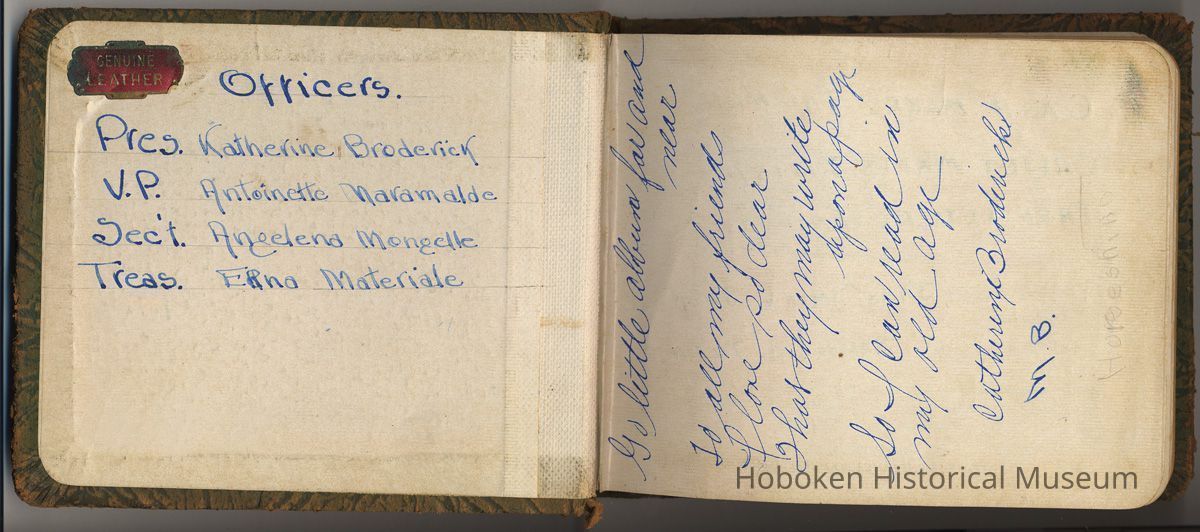 GENUINE
LEATHER
Officers.
Pres. Katherine Broderick
V.P. Antoinette Maramalde
Sec't. Angelena Mongelle
Treas. Erna Materiale
Go little album far and
near
To all my friends
I love so dear
That they may write
upon a page
So I can read in
my old age
Catherine Broderick
M.B.
Hoboken Historical Museum